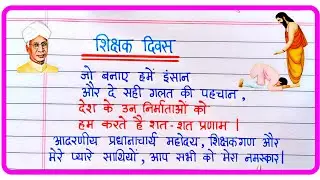 शिक्षक दिवस
जो बनाए हमें इंसान
और दे सही गलत की पहचान,
देश के उन निर्माताओं को
हम करते है शत-शत प्रणाम |
आदरणीय प्रधानाचार्य महोदय, शिक्षकगण और
मेरे प्यारे साथियों, आप सभी को मेरा नमस्कार|